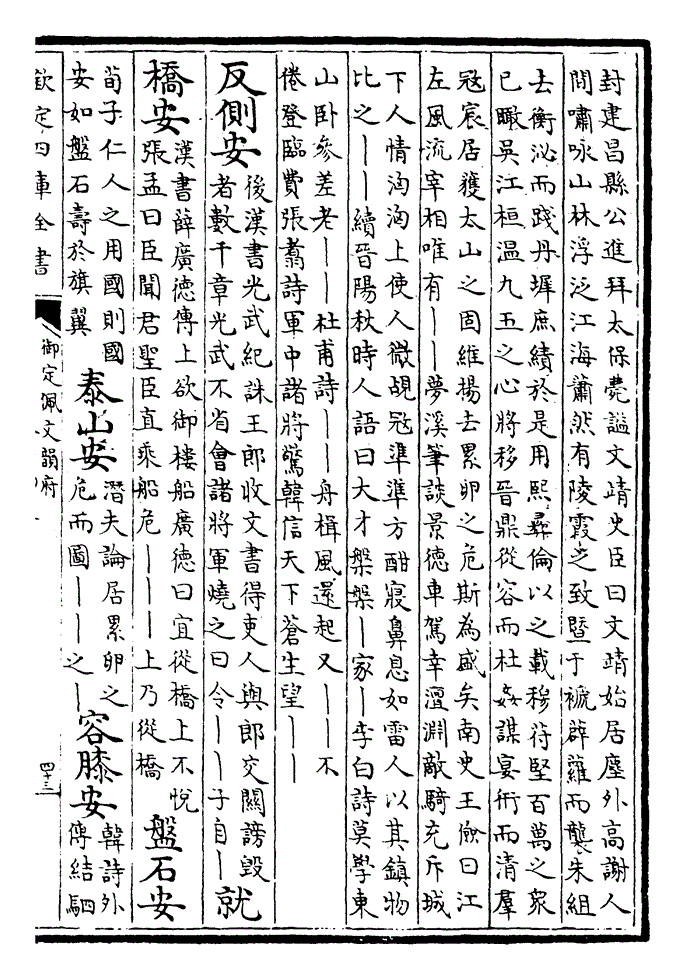 封建昌縣公進拜太保薨謚文靖史臣曰文靖始居塵外高謝人
間嘯咏山林浮泛江海蕭然有陵霞之致暨于褫薜蘿而襲朱組
去衡泌而踐丹墀庶績於是用熙彛倫以之載穆苻堅百萬之衆
已瞰吳江桓溫九五之心將移晉鼎從容而杜姦謀宴衎而清羣
冦宸居獲太山之固維揚去累卵之危斯為盛矣南史王儉曰江
左風流宰相唯有丨丨夢溪筆談景德車駕幸澶淵敵騎充斥城
下人情洶洶上使人微覘冦準準方酣寢鼻息如雷人以其鎮物
比之丨丨續晉陽秋時人語曰大才槃槃丨家丨李白詩莫學東
山卧參差老丨丨杜甫詩丨丨舟楫風還起又丨丨丨不
倦登臨費張翥詩軍中諸將驚韓信天下蒼生望丨丨
反側安
後漢書光武紀誅王郎收文書得吏人與郎交關謗毁
者數千章光武不省會諸將軍燒之曰令丨丨子自丨
就
橋安
漢書薛廣德傳上欲御樓船廣德曰宜從橋上不悅
張孟曰臣聞君聖臣直乘船危丨丨丨上乃從橋
盤石安
荀子仁人之用國則國
安如盤石壽於旗翼
泰山安
潛夫論居累卵之
危而圖丨丨之丨
容膝安
韓詩外
傳結駟
欽定四庫全書
御定佩文韻府
四十三